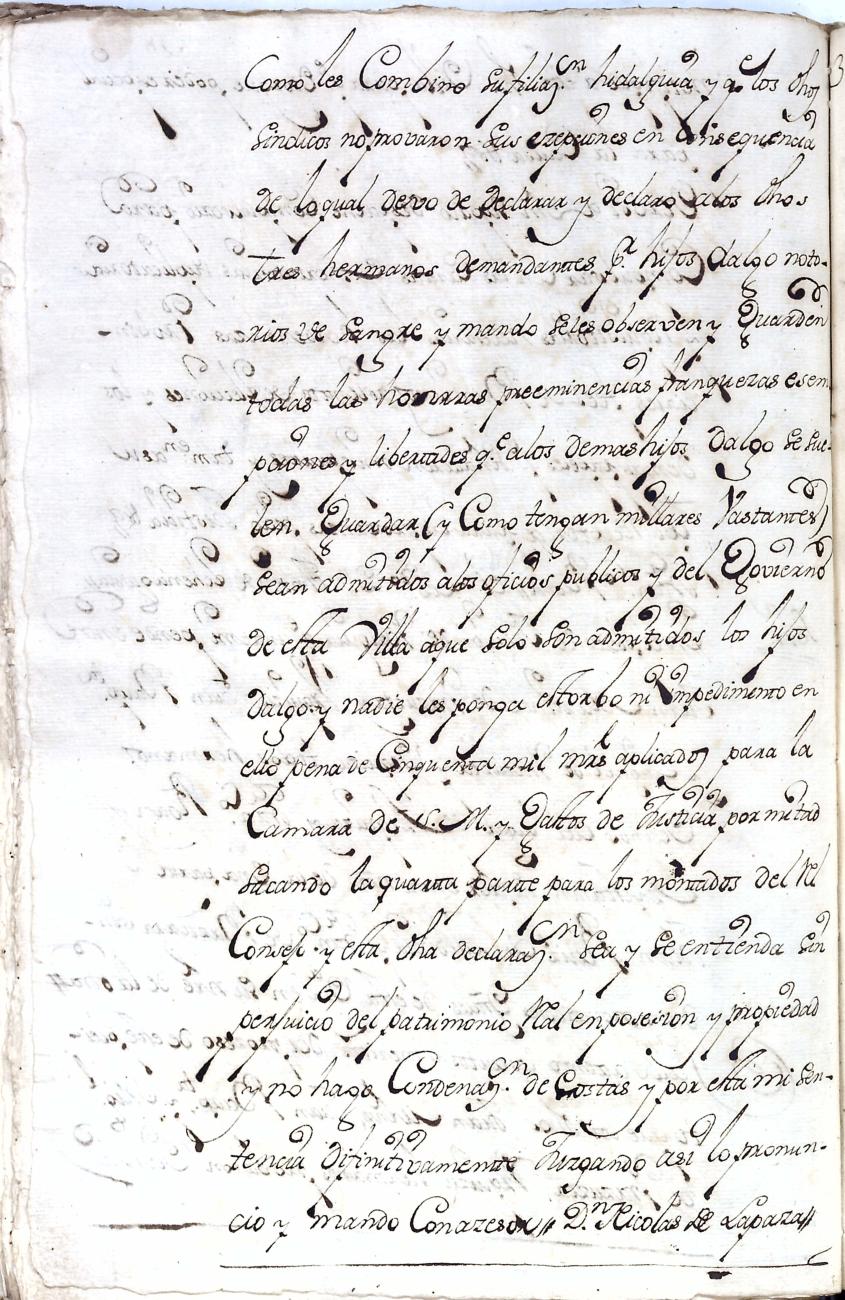 Como les Combino su filiaz.on hidalguia y q.e los dhos
Sindicos no provaron sus ezepciones en Consequencia
de lo qual devo de declarar y declaro a los dhos
tres hermanos demandantes p.r hijos dalgo noto-
rios de sangre y mando se les observen y Guarden
todas las honrras preeminencias franquezas esem
pciones y libertades q.e a los demas hijos Dalgo se sue-
len Guardar (y Como tengan millares Vastantes)
sean admitidos a los oficios publicos y del Govierno
de esta Villa a que solo son admitidos los hijos
Dalgo y nadie les ponga estorbo ni Ympedimento en
ello pena de Cinquenta mil mrs aplicados para la
Camara de S. M. y Gastos de Justicia por mitad
sacando la quarta parte para los montados del Rl
Consejo y esta dha declaraz.on sea y se entienda sin
perjuicio del patrimonio Rl en posesion y propiedad
y no hago Condenaz.on de Costas y por esta mi sen-
tencia difinitivamente Juzgando asi lo pronun-
cio y mando Con azesor // D.n Nicolas de Lapaza //